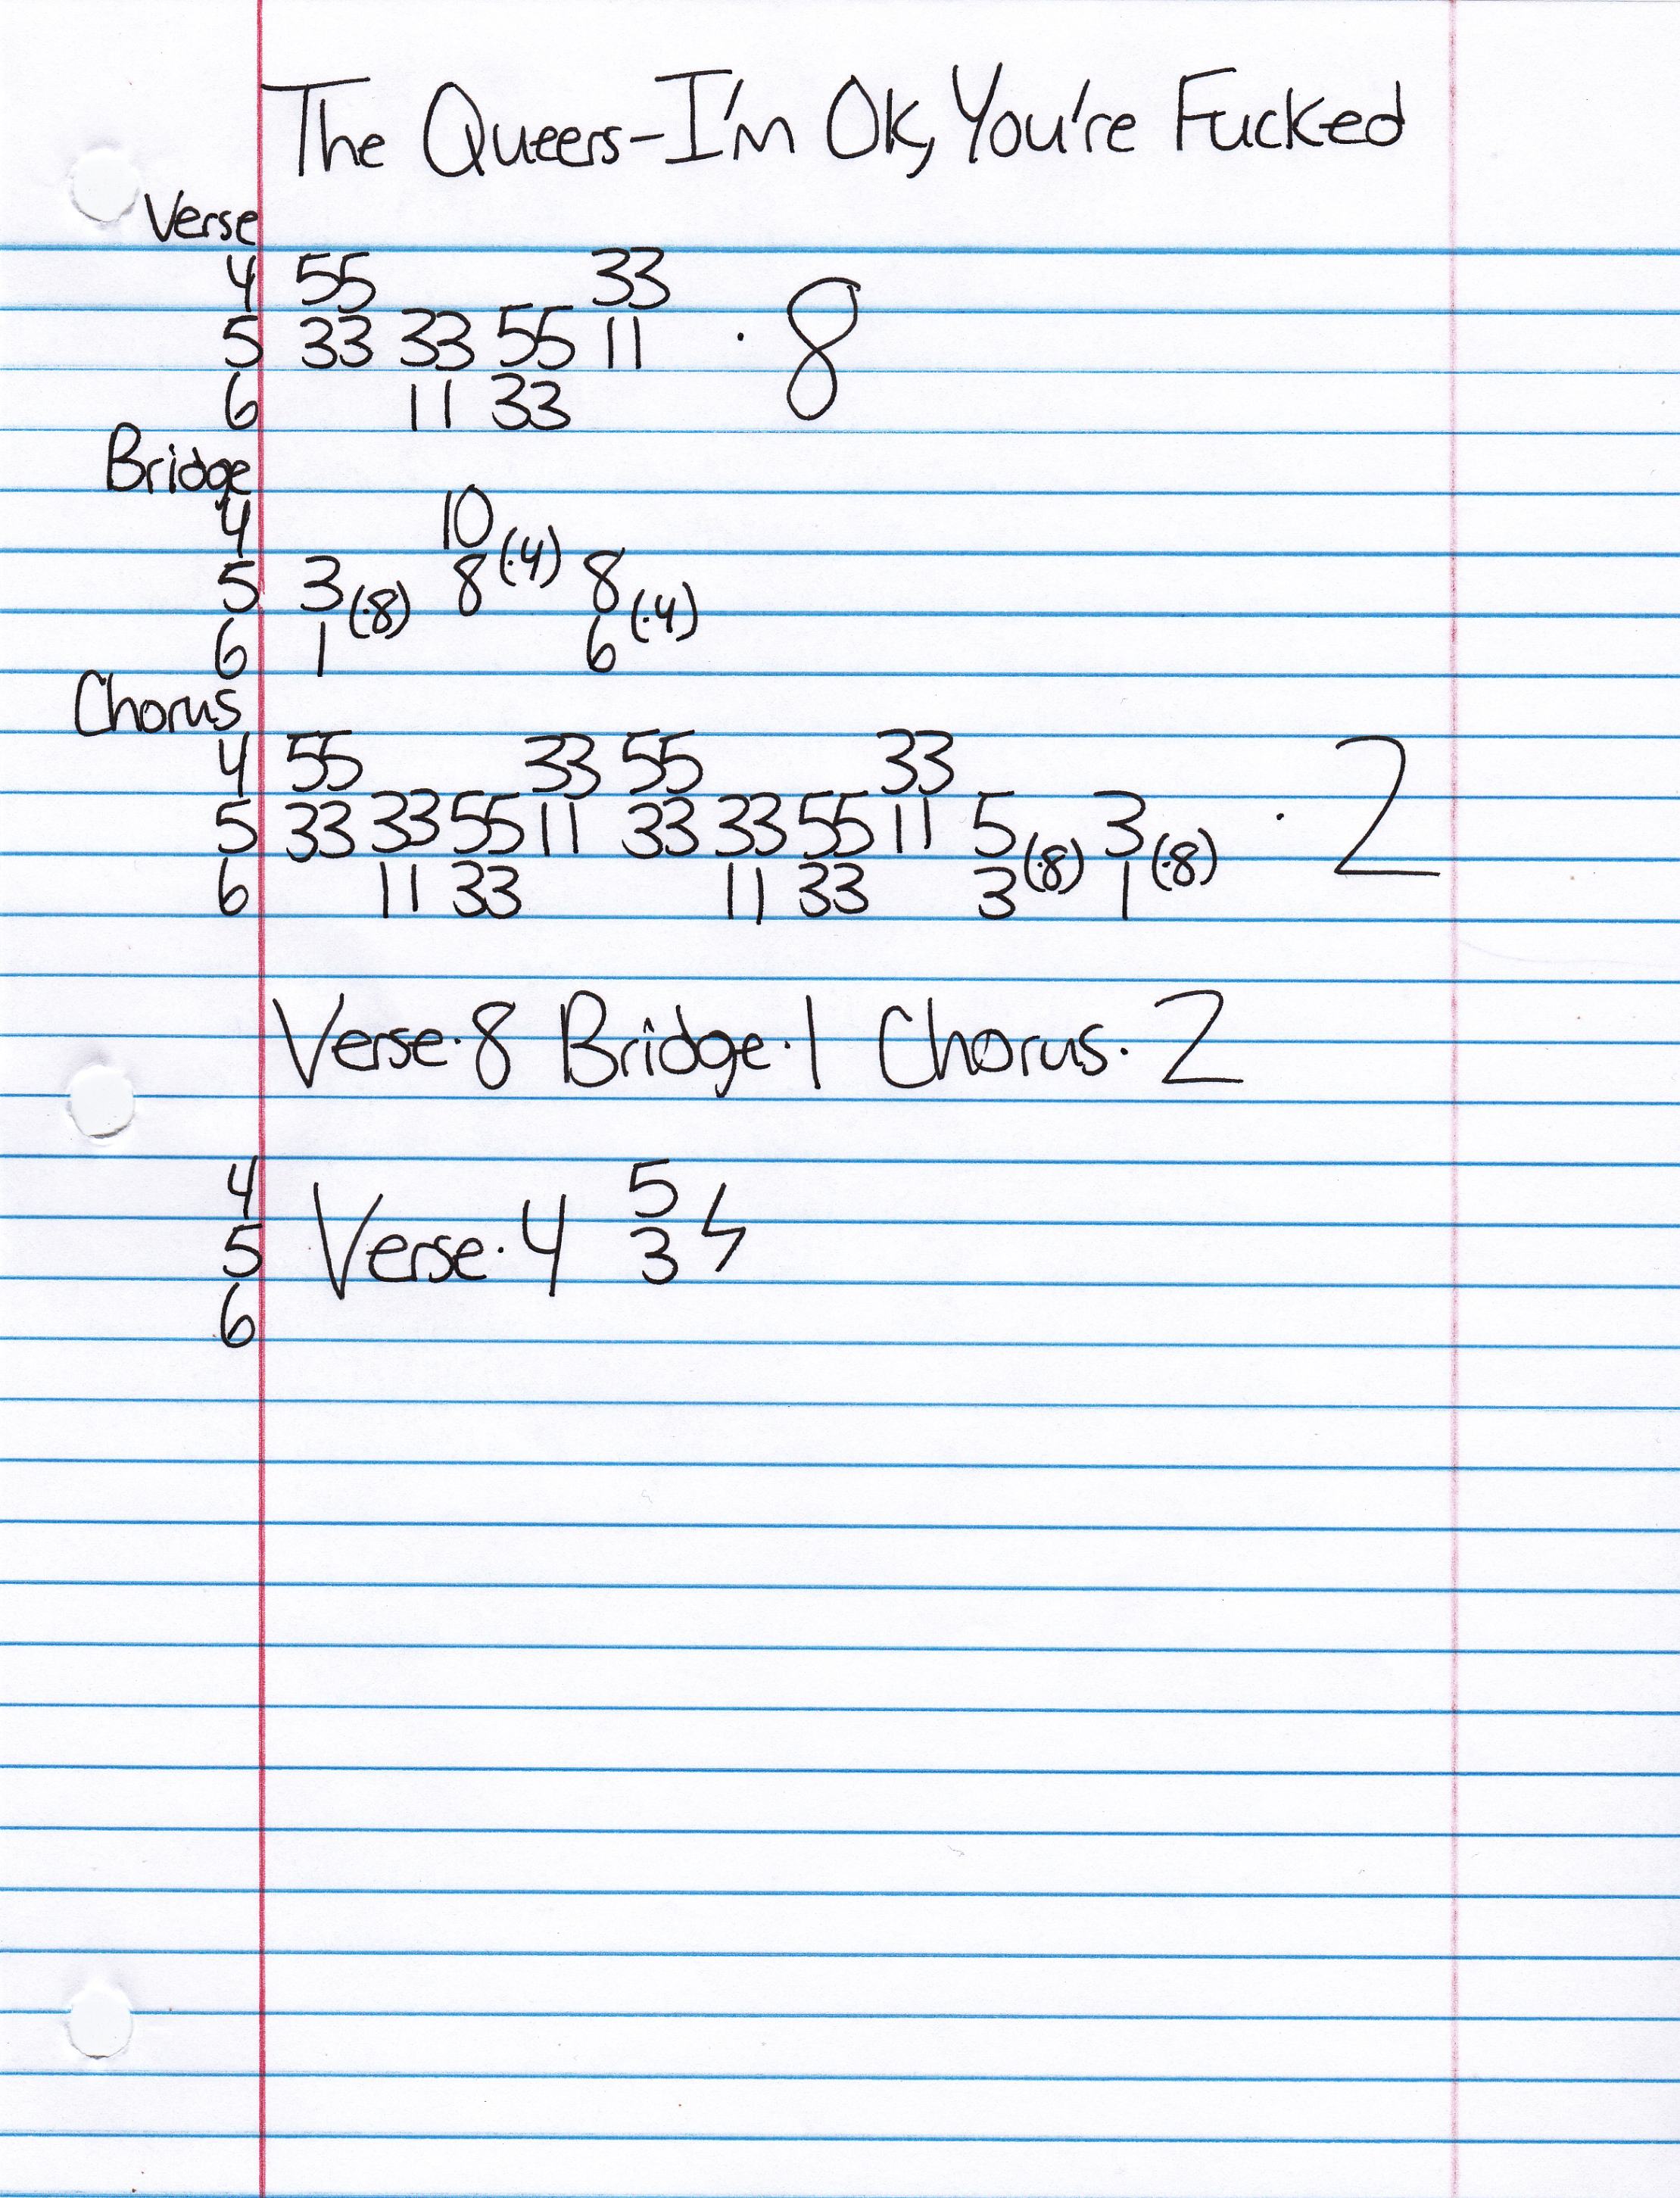 The Queers-I'm Ok, You're Fucked
Verse
4 55 33
5 33 33 55 11 · 8
6 11 33
Bridge
4 10
5 3 (·8) 8 (·4) 8
6 1 6 (·4)
Chorus
4 55 33 55 33
5 33 33 55 11 33 33 55 11 5 (·8) 3 (·8) · 2
6 11 33 11 33 3 1
Verse·8 Bridge·1 Chorus·2
4 5
5 Verse·4 3
6